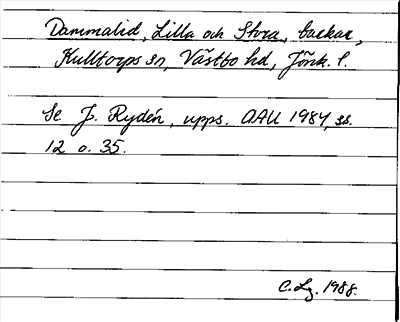 Dammalid, Lilla och Stora, backar,
Kulltorps sn, Västbo hd, Jönk. l.
Se J. Rydén, upps. AAU 1984, ss.
12 o. 35.
C. Lg. 1988.